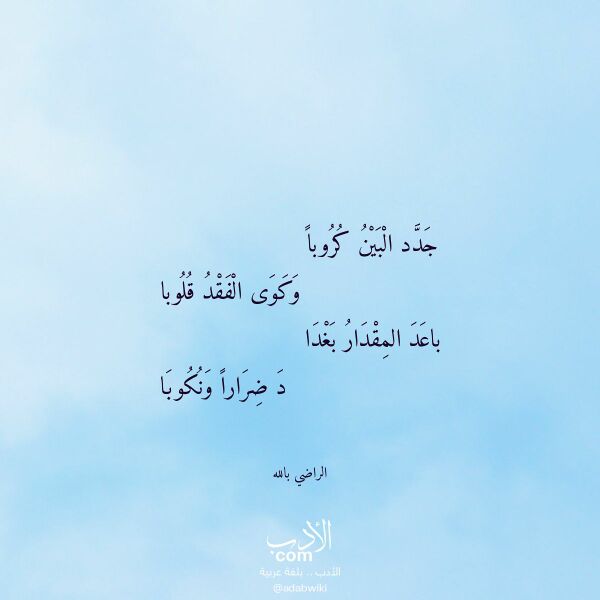 جَدَّد الْبَيْنُ كُرُوباً
وَكَوَى الْفَقْدُ قُلُوبا
باعَدَ المِقْدَارُ بَغْدَا
دَ ضِرَاراً وَنُكُوبَا
الراضي بالله
الأدب
com
الأدب .. بلغة عربية
@adabwiki